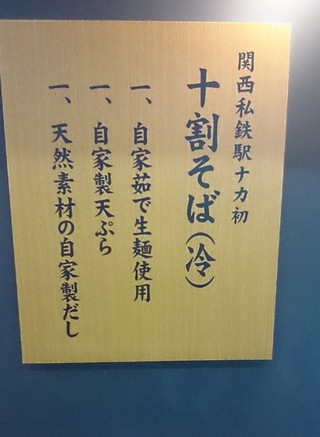 関西私鉄駅ナカ初
十割そば(冷)
一、自家茹で生麺使用
一、自家製天ぷら
一、天然素材の自家製だし